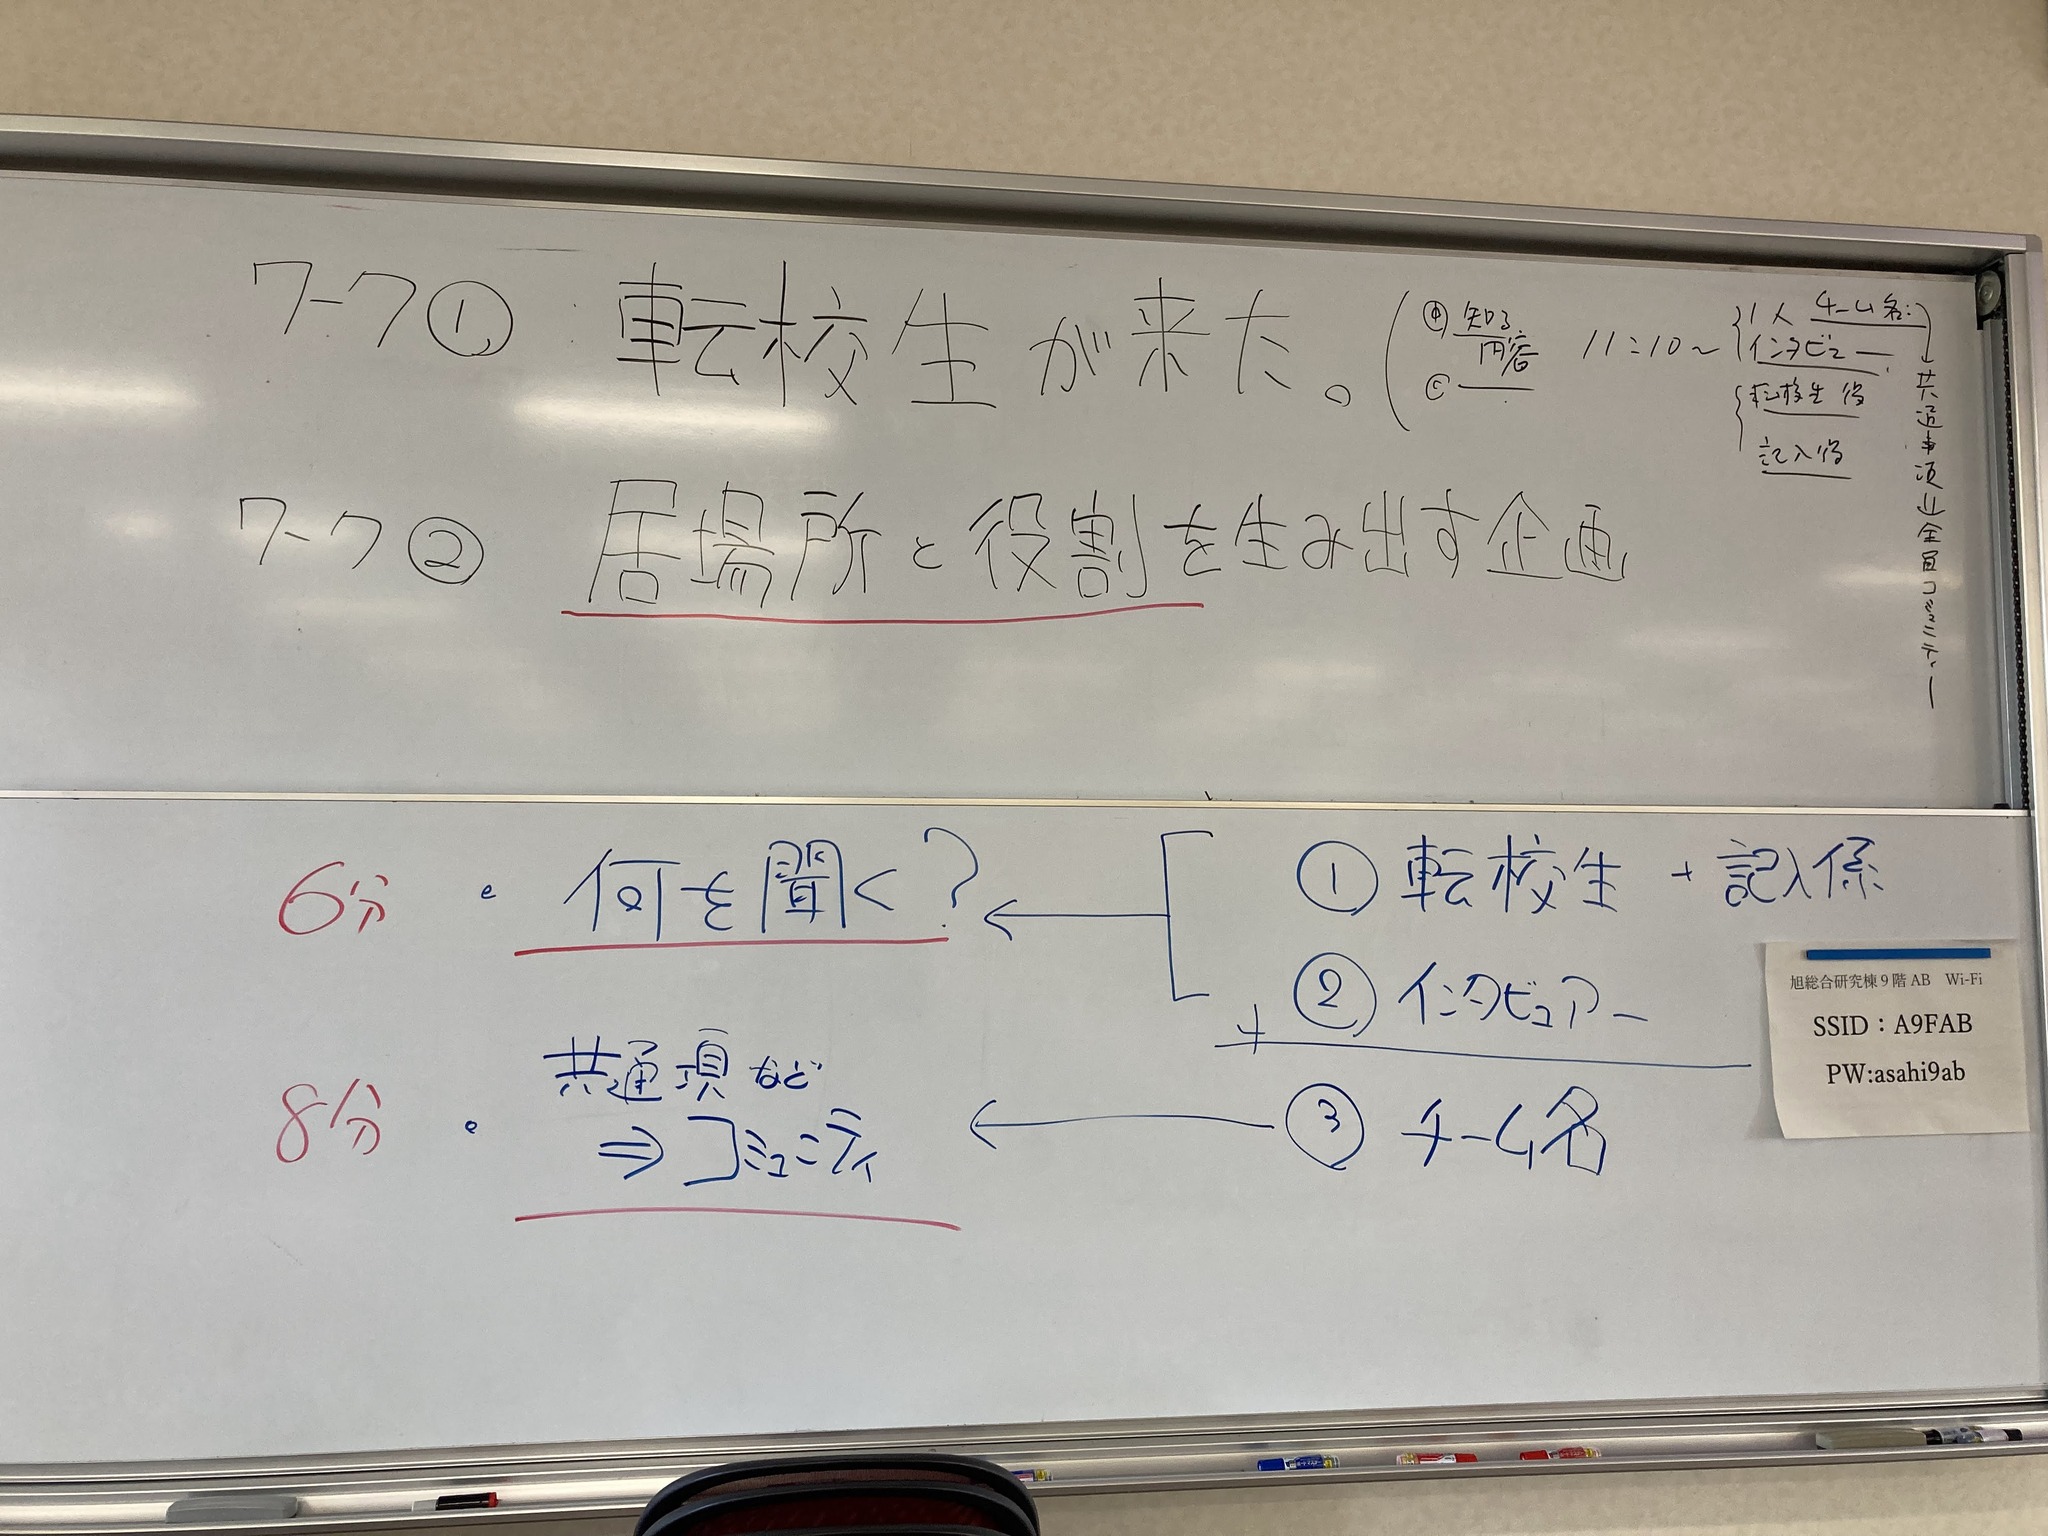 ワーク① 転校生が来た。
知る
内容
11:10〜
1人 チーム名:
インタビュー
転校生役
記入役
共通事項
全員コミュニティー
ワーク② 居場所と役割を生み出す企画
6分 ・何を聞く?
① 転校生 + 記入係
② インタビュアー
+
8分 ・共通項など
⇒コミュニティ
③ チーム名
旭総合研究棟9階AB Wi-Fi
SSID:A9FAB
PW:asahi9ab